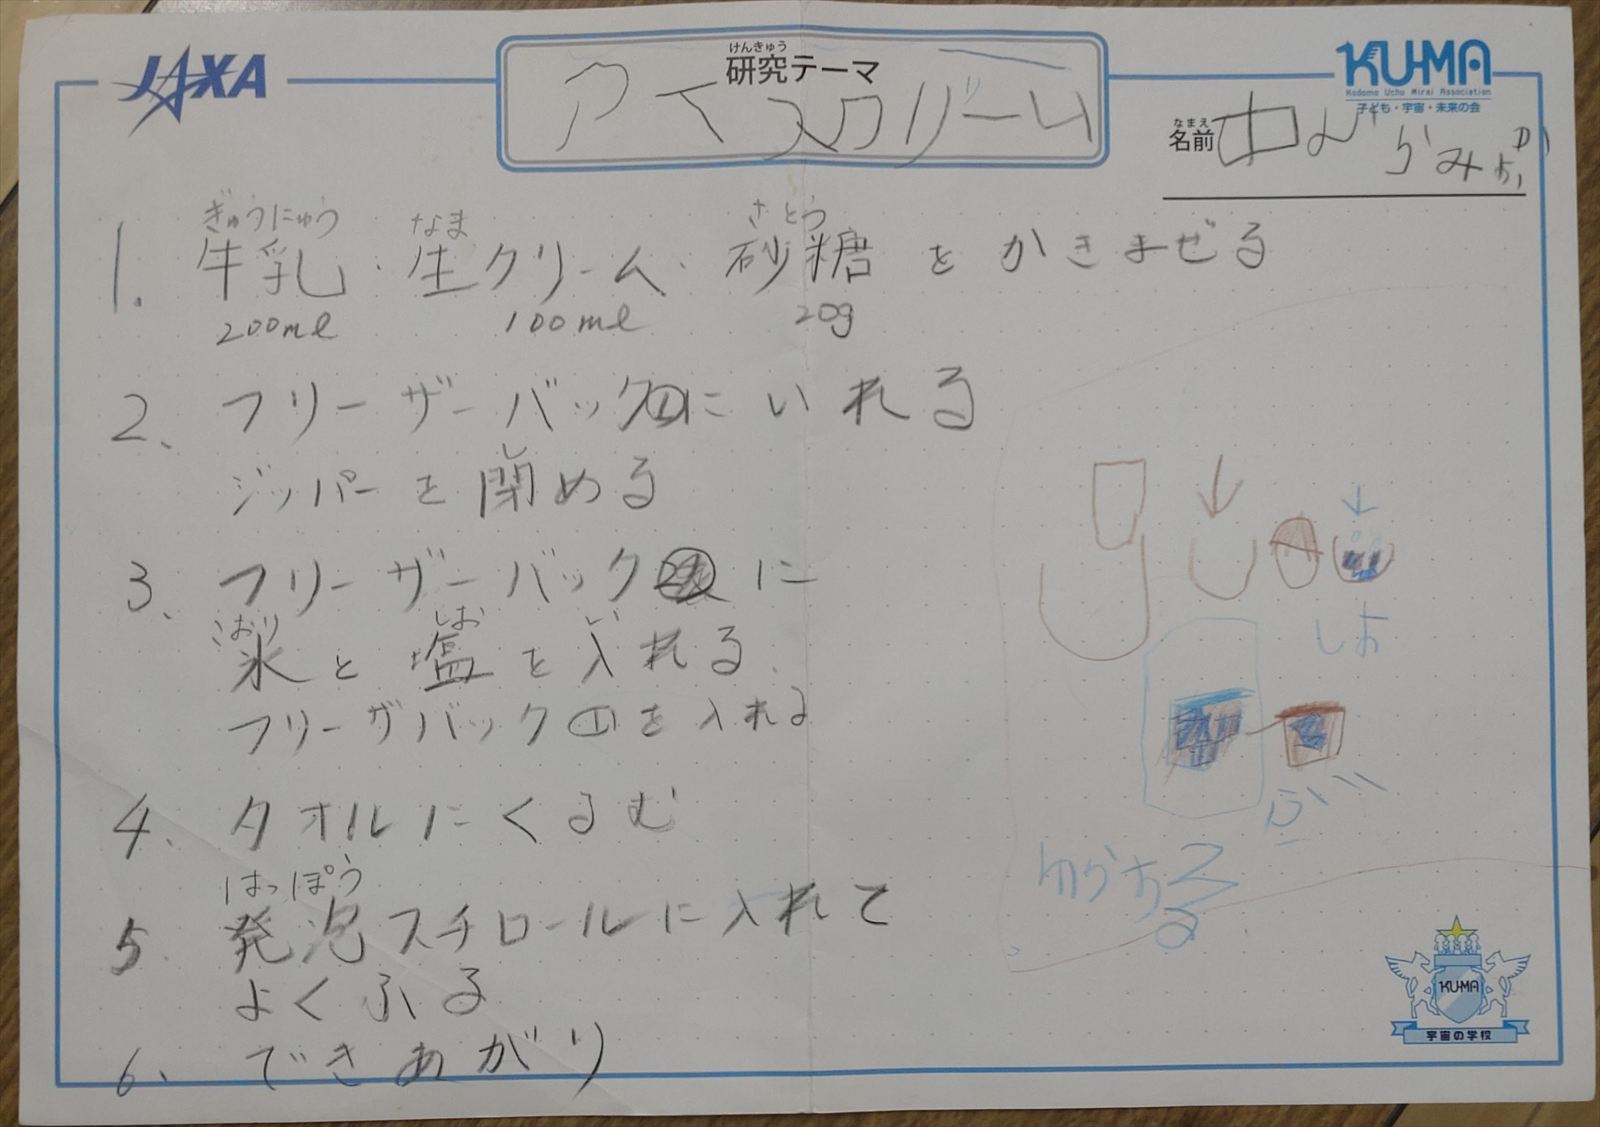 JAXA
けんきゅう
研究テーマ
アイスクリーム
KU-MA
Kodomo Uchu Mirai Association
子ども・宇宙・未来の会
なまえ
名前
ぎゅうにゅう なま さとう
1. 牛乳・生クリーム・砂糖をかきまぜる
200ml 100ml 20g
2、フリーザーバック①にいれる
し
ジッパーを閉める
3、フリーザーバック②に
こおり しお い
氷と塩を入れる
フリーザバック①を入れる
4、タオルにくるむ
はっぽう
5 発泡スチロールに入れて
よくふる
6、できあがり
しお
KU-MA
宇宙の学校